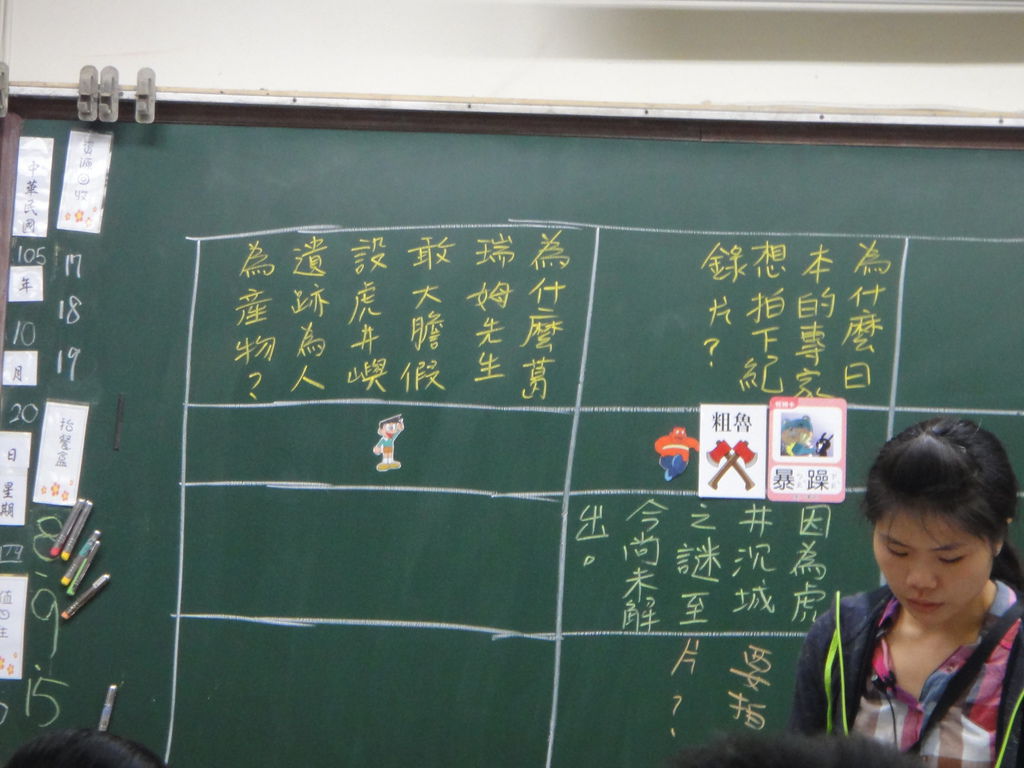 資源回收
中華民國
105
年
10
月
20
日
星期
四
值日生
17
18
19
抬餐盒
8.
9.
15
為什麼日
本的專家
想拍下紀
錄片?
為什麼葛
瑞姆先生
敢大膽假
設虎井嶼
遺跡為人
為產物?
粗魯
暴躁
因為虎
井沉城
之謎至
今尚未解
出。
片?